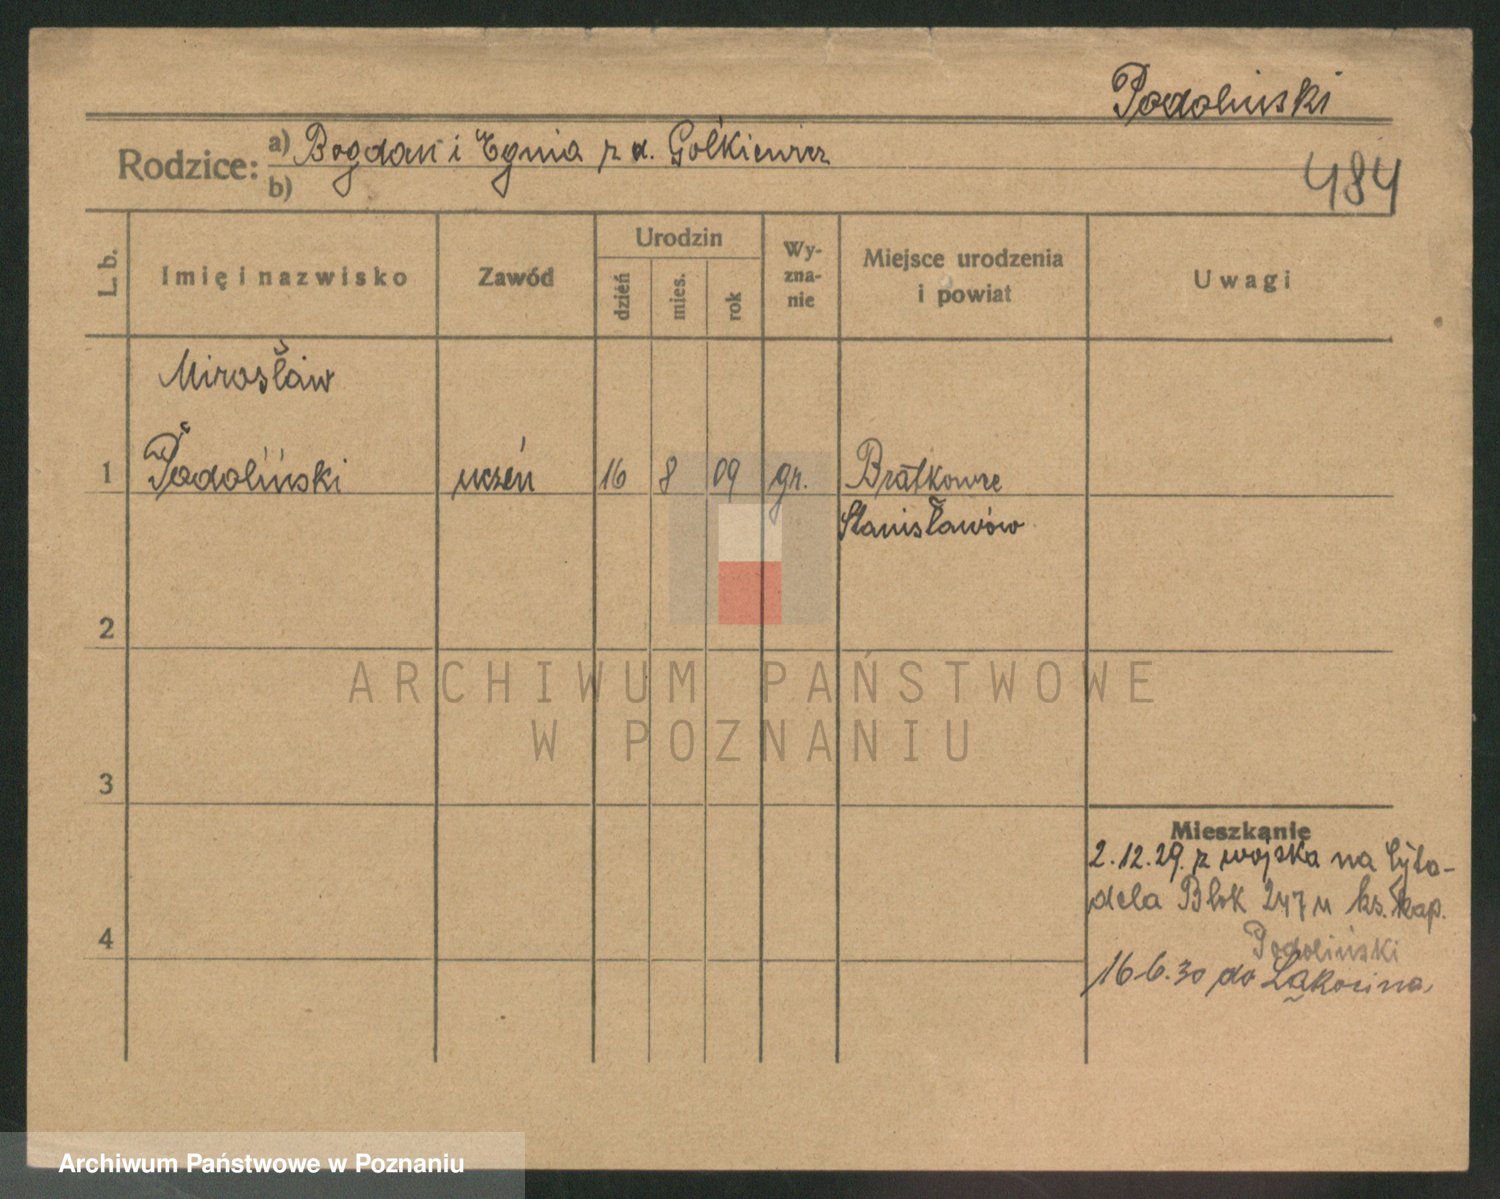 Podoliński
Rodzice: a) Bogdan i Egnia z d. Gołkiewicz
b)
484
L. b.
Imię i nazwisko
Zawód
Urodzin
dzień
mies.
rok
Wy-
zna-
nie
Miejsce urodzenia
i powiat
Uwagi
Mirosław
1 Podoliński uczeń 16 8 09 gr. Bratkowce
Stanisławów
2
3
4
ARCHIWUM PAŃSTWOWE
W POZNANIU
Mieszkanie
2.12.29. z wojska na Cyta-
dela Blok 247 u ks. kap.
Podoliński
16.6.30 do
Archiwum Państwowe w Poznaniu